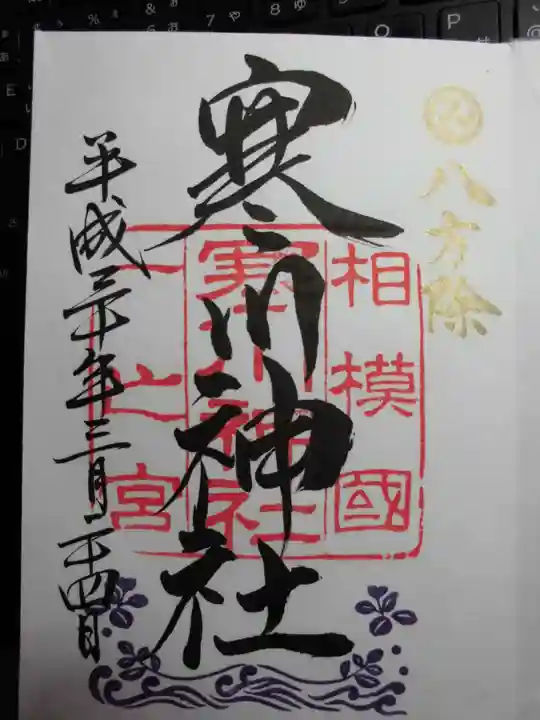 八方除
寒川神社
相模國
寒川神社
一之宮
平成三十年三月二十四日